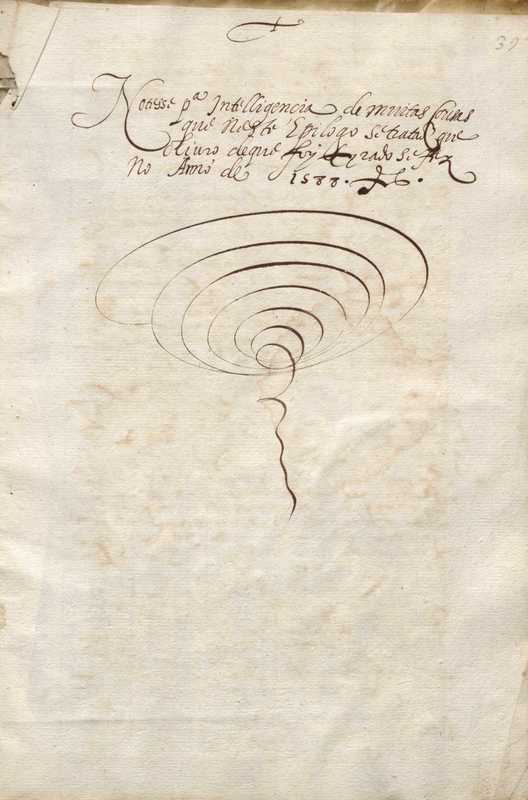 39
Notesse pª Intelligencia de muitas Cousas
que Neste Epilogo se trata Que
o liuro de que foy tyrado se fez
No Anno de 1588.